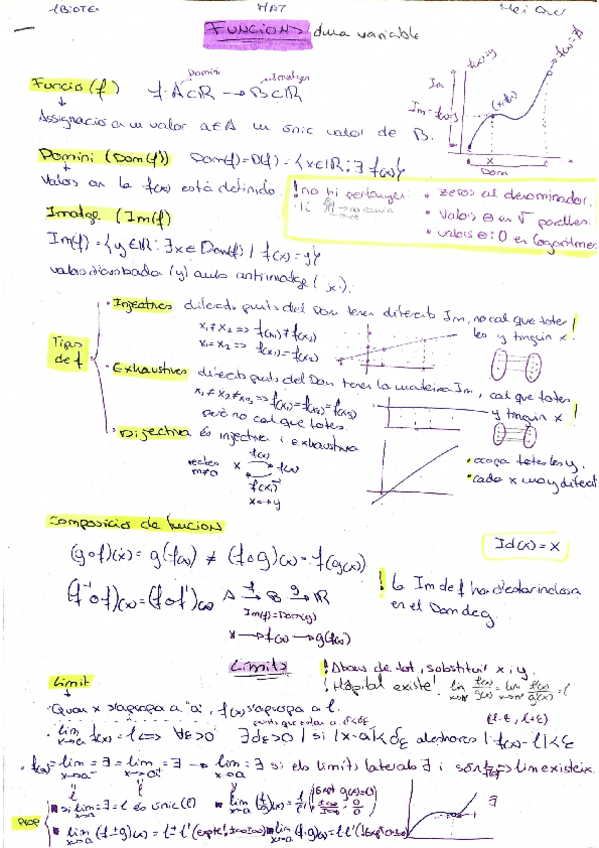 1BIOTEC MAT
FUNCIONS d'una variable
Funció (f) f: A⊂ℝ → B⊂ℝ
Domini Imatge
Assignació a un valor a∈A un únic valor de B.
Domini (Dom(f)) Dom(f)=D(f)={x∈ℝ: ∃ f(x)}
Valors on la f(x) està definida.
! no hi pertanyen:
• zeros al denominador.
• Valors ⊖ en √ parelles.
• valors ⊖ i 0 en logaritmes
Im
f(x)=y
(x, f(x))
x
Dom
Imatge (Im(f)
Im(f)={y∈ℝ: ∃x∈Dom(f) / f(x)=y}
valors d'arribada (y) amb antiimatge (x).
Tipus de f
• Injectives diferents punts del Dom tenen diferents Im, no cal que totes les y tinguin x. !
x₁≠x₂ => f(x₁)≠f(x₂)
x₁=x₂ => f(x₁)=f(x₂)
• Exhaustives diferents punts del Dom tenen la mateixa Im, cal que totes y tinguin x !
x₁≠x₂≠x₃ => f(x₁)=f(x₂)=f(x₃)
però no cal que totes.
• Bijectiva és injectiva i exhaustiva
rectes m≠0
x f(x)
x↔y
• ocupa totes les y.
• cada x una y diferent
Composició de funcions
Id(x)=x
(g∘f)(x)=g(f(x)) ≠ (f∘g)(x)=f(g(x))
(f⁻¹∘f)(x)=(f∘f⁻¹)(x) A →f B →g ℝ
Im(f)=Dom(g)
x → f(x) → g(f(x))
! La Im de f ha d'estar inclosa en el Dom de g.
Límits
! Abans de tot, substituir x i y.
! Hôpital existe! lim f(x)/g(x) = lim f'(x)/g'(x) = l
Límit
Quan x s'apropa a "a", f(x) s'apropa a l.
(l-ε, l+ε)
lim x→a f(x)=l <=> ∀ε>0 ∃δε>0 | si |x-a|<δε aleshores |f(x)-l|<ε
si els límits laterals ∃ i són = => lim existeix.
Prop
▪ si lim x→a = ∃ = l és únic (l)
▪ lim x→a (f±g)(x) = l±l'